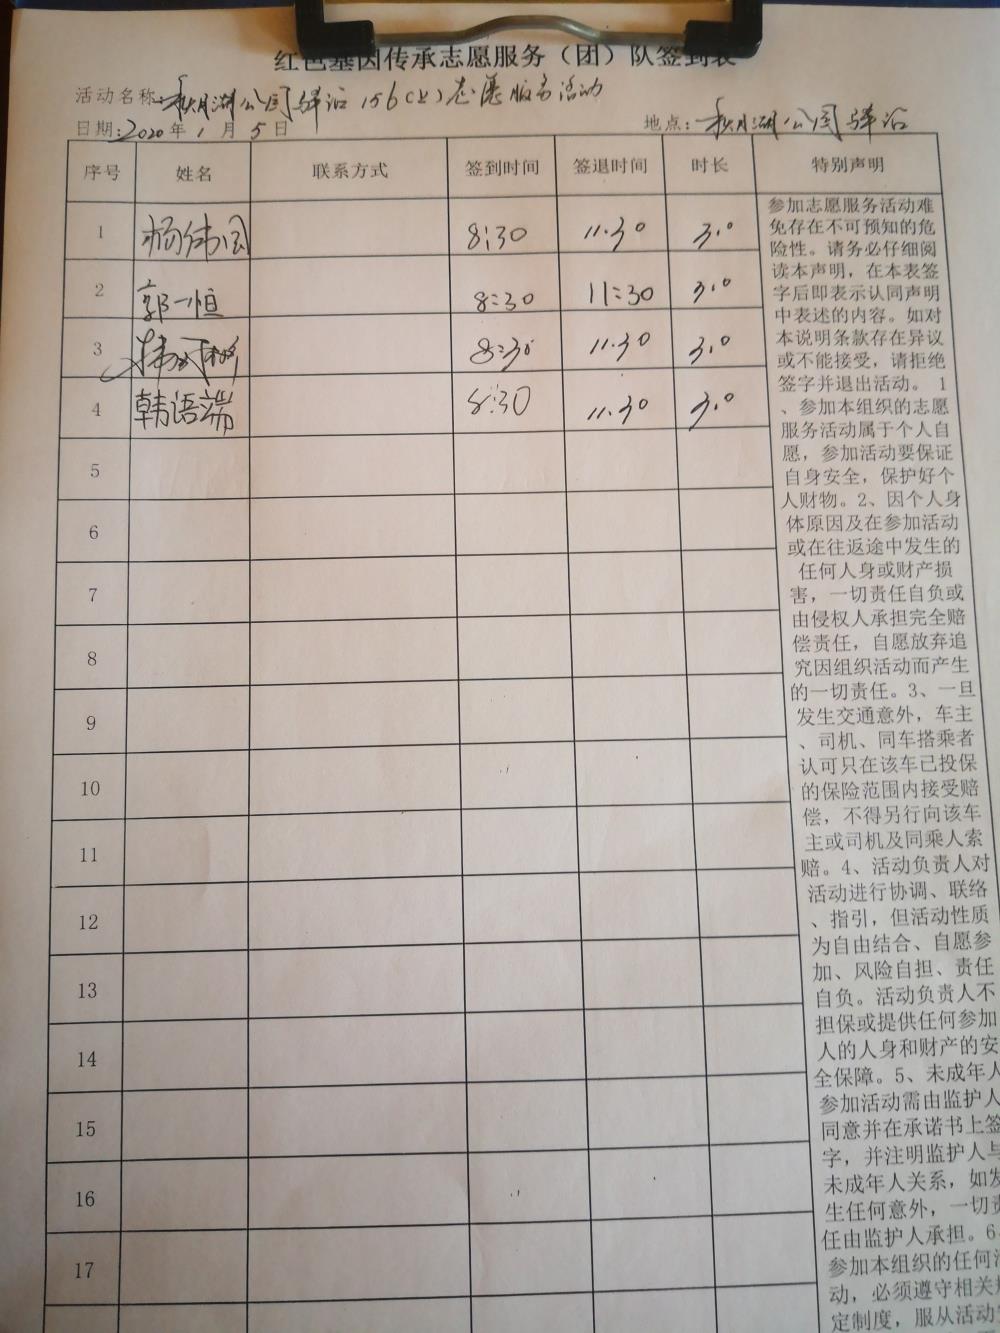 红色基因传承志愿服务（团）队签到表
活动名称:秋月湖公园驿站156(上)志愿服务活动
日期:2020年1月5日 地点:秋月湖公园驿站
序号 姓名 联系方式 签到时间 签退时间 时长 特别声明
1 8:30 11.30 3.0
2 郭一恒 8:30 11:30 3.0
3 8:30 11.30 3.0
4 韩语端 8:30 11.30 3.0
5
6
7
8
9
10
11
12
13
14
15
16
17
参加志愿服务活动难
免存在不可预知的危
险性。请务必仔细阅
读本声明，在本表签
字后即表示认同声明
中表述的内容。如对
本说明条款存在异议
或不能接受，请拒绝
签字并退出活动。 1
、参加本组织的志愿
服务活动属于个人自
愿，参加活动要保证
自身安全，保护好个
人财物。2、因个人身
体原因及在参加活动
或在往返途中发生的
任何人身或财产损
害，一切责任自负或
由侵权人承担完全赔
偿责任，自愿放弃追
究因组织活动而产生
的一切责任。3、一旦
发生交通意外，车主
、司机、同车搭乘者
认可只在该车已投保
的保险范围内接受赔
偿，不得另行向该车
主或司机及同乘人索
赔。4、活动负责人对
活动进行协调、联络
、指引，但活动性质
为自由结合、自愿参
加、风险自担、责任
自负。活动负责人不
担保或提供任何参加
人的人身和财产的安
全保障。5、未成年人
参加活动需由监护人
同意并在承诺书上签
字，并注明监护人与
未成年人关系，如发
生任何意外，一切责
任由监护人承担。6、
参加本组织的任何活
动，必须遵守相关规
定制度，服从活动